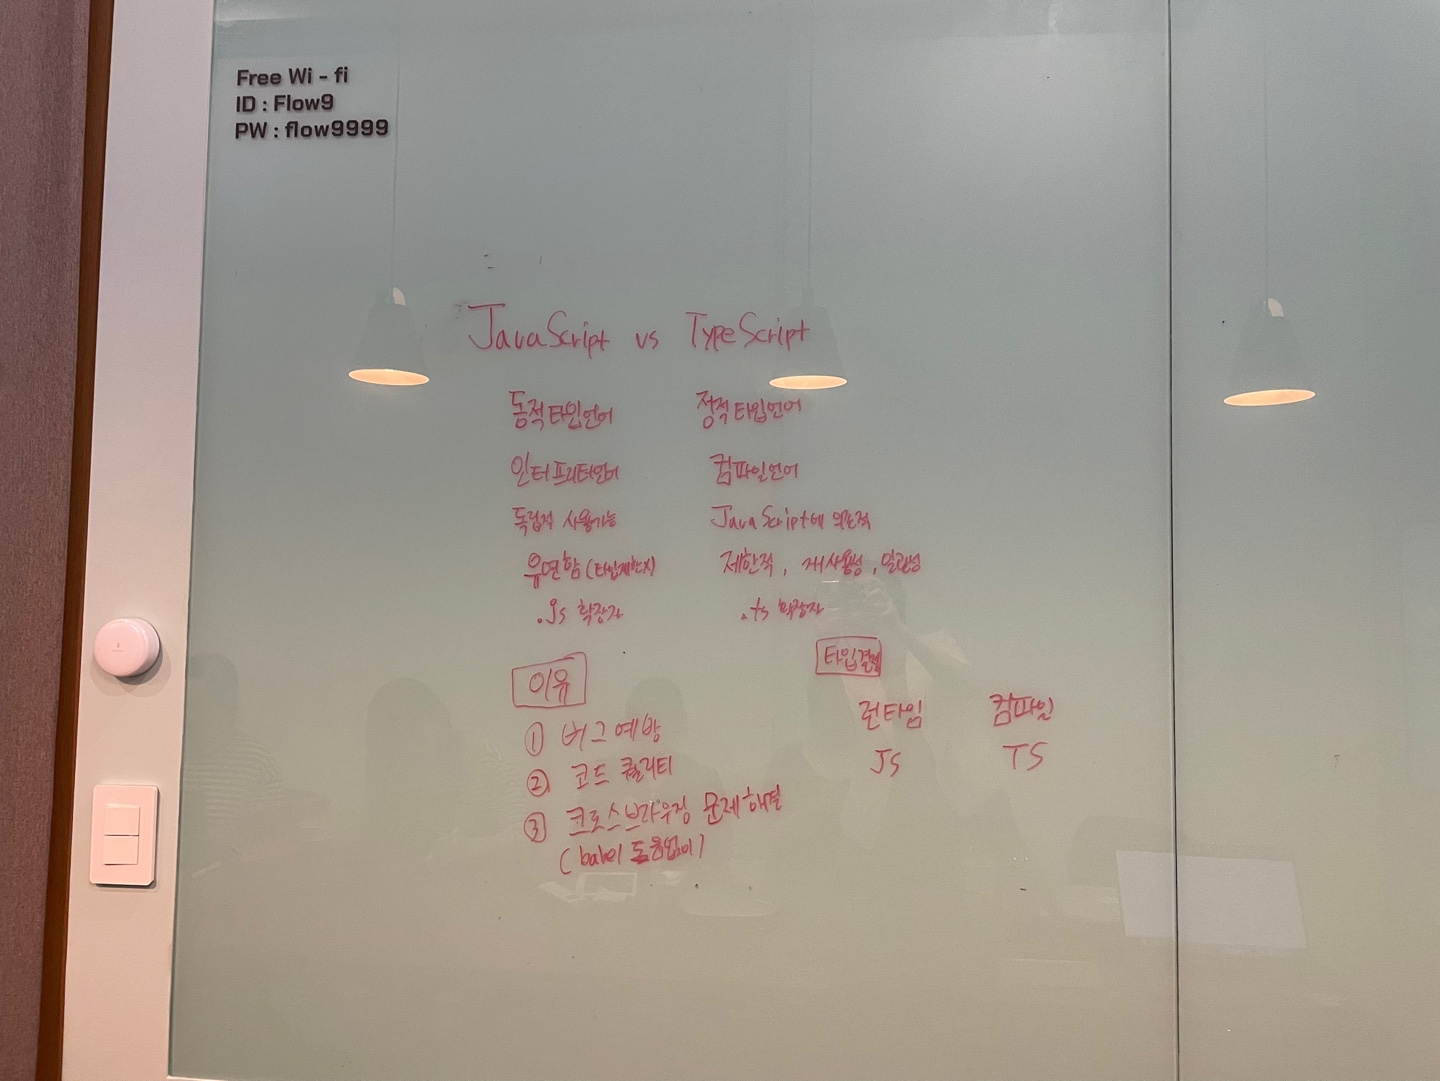 Free Wi - fi
ID : Flow9
PW : flow9999
JavaScript vs TypeScript
동적타입언어 정적타입언어
인터프리터언어 컴파일언어
독립적 사용가능 JavaScript에 의존적
유연함 (타입제한X) 제한적, 재사용성, 일관성
.js 확장자 .ts 확장자
타입결정
이유
런타임 컴파일
① 버그예방
JS TS
② 코드 퀄리티
③ 크로스브라우징 문제해결
(babel 도움없이)